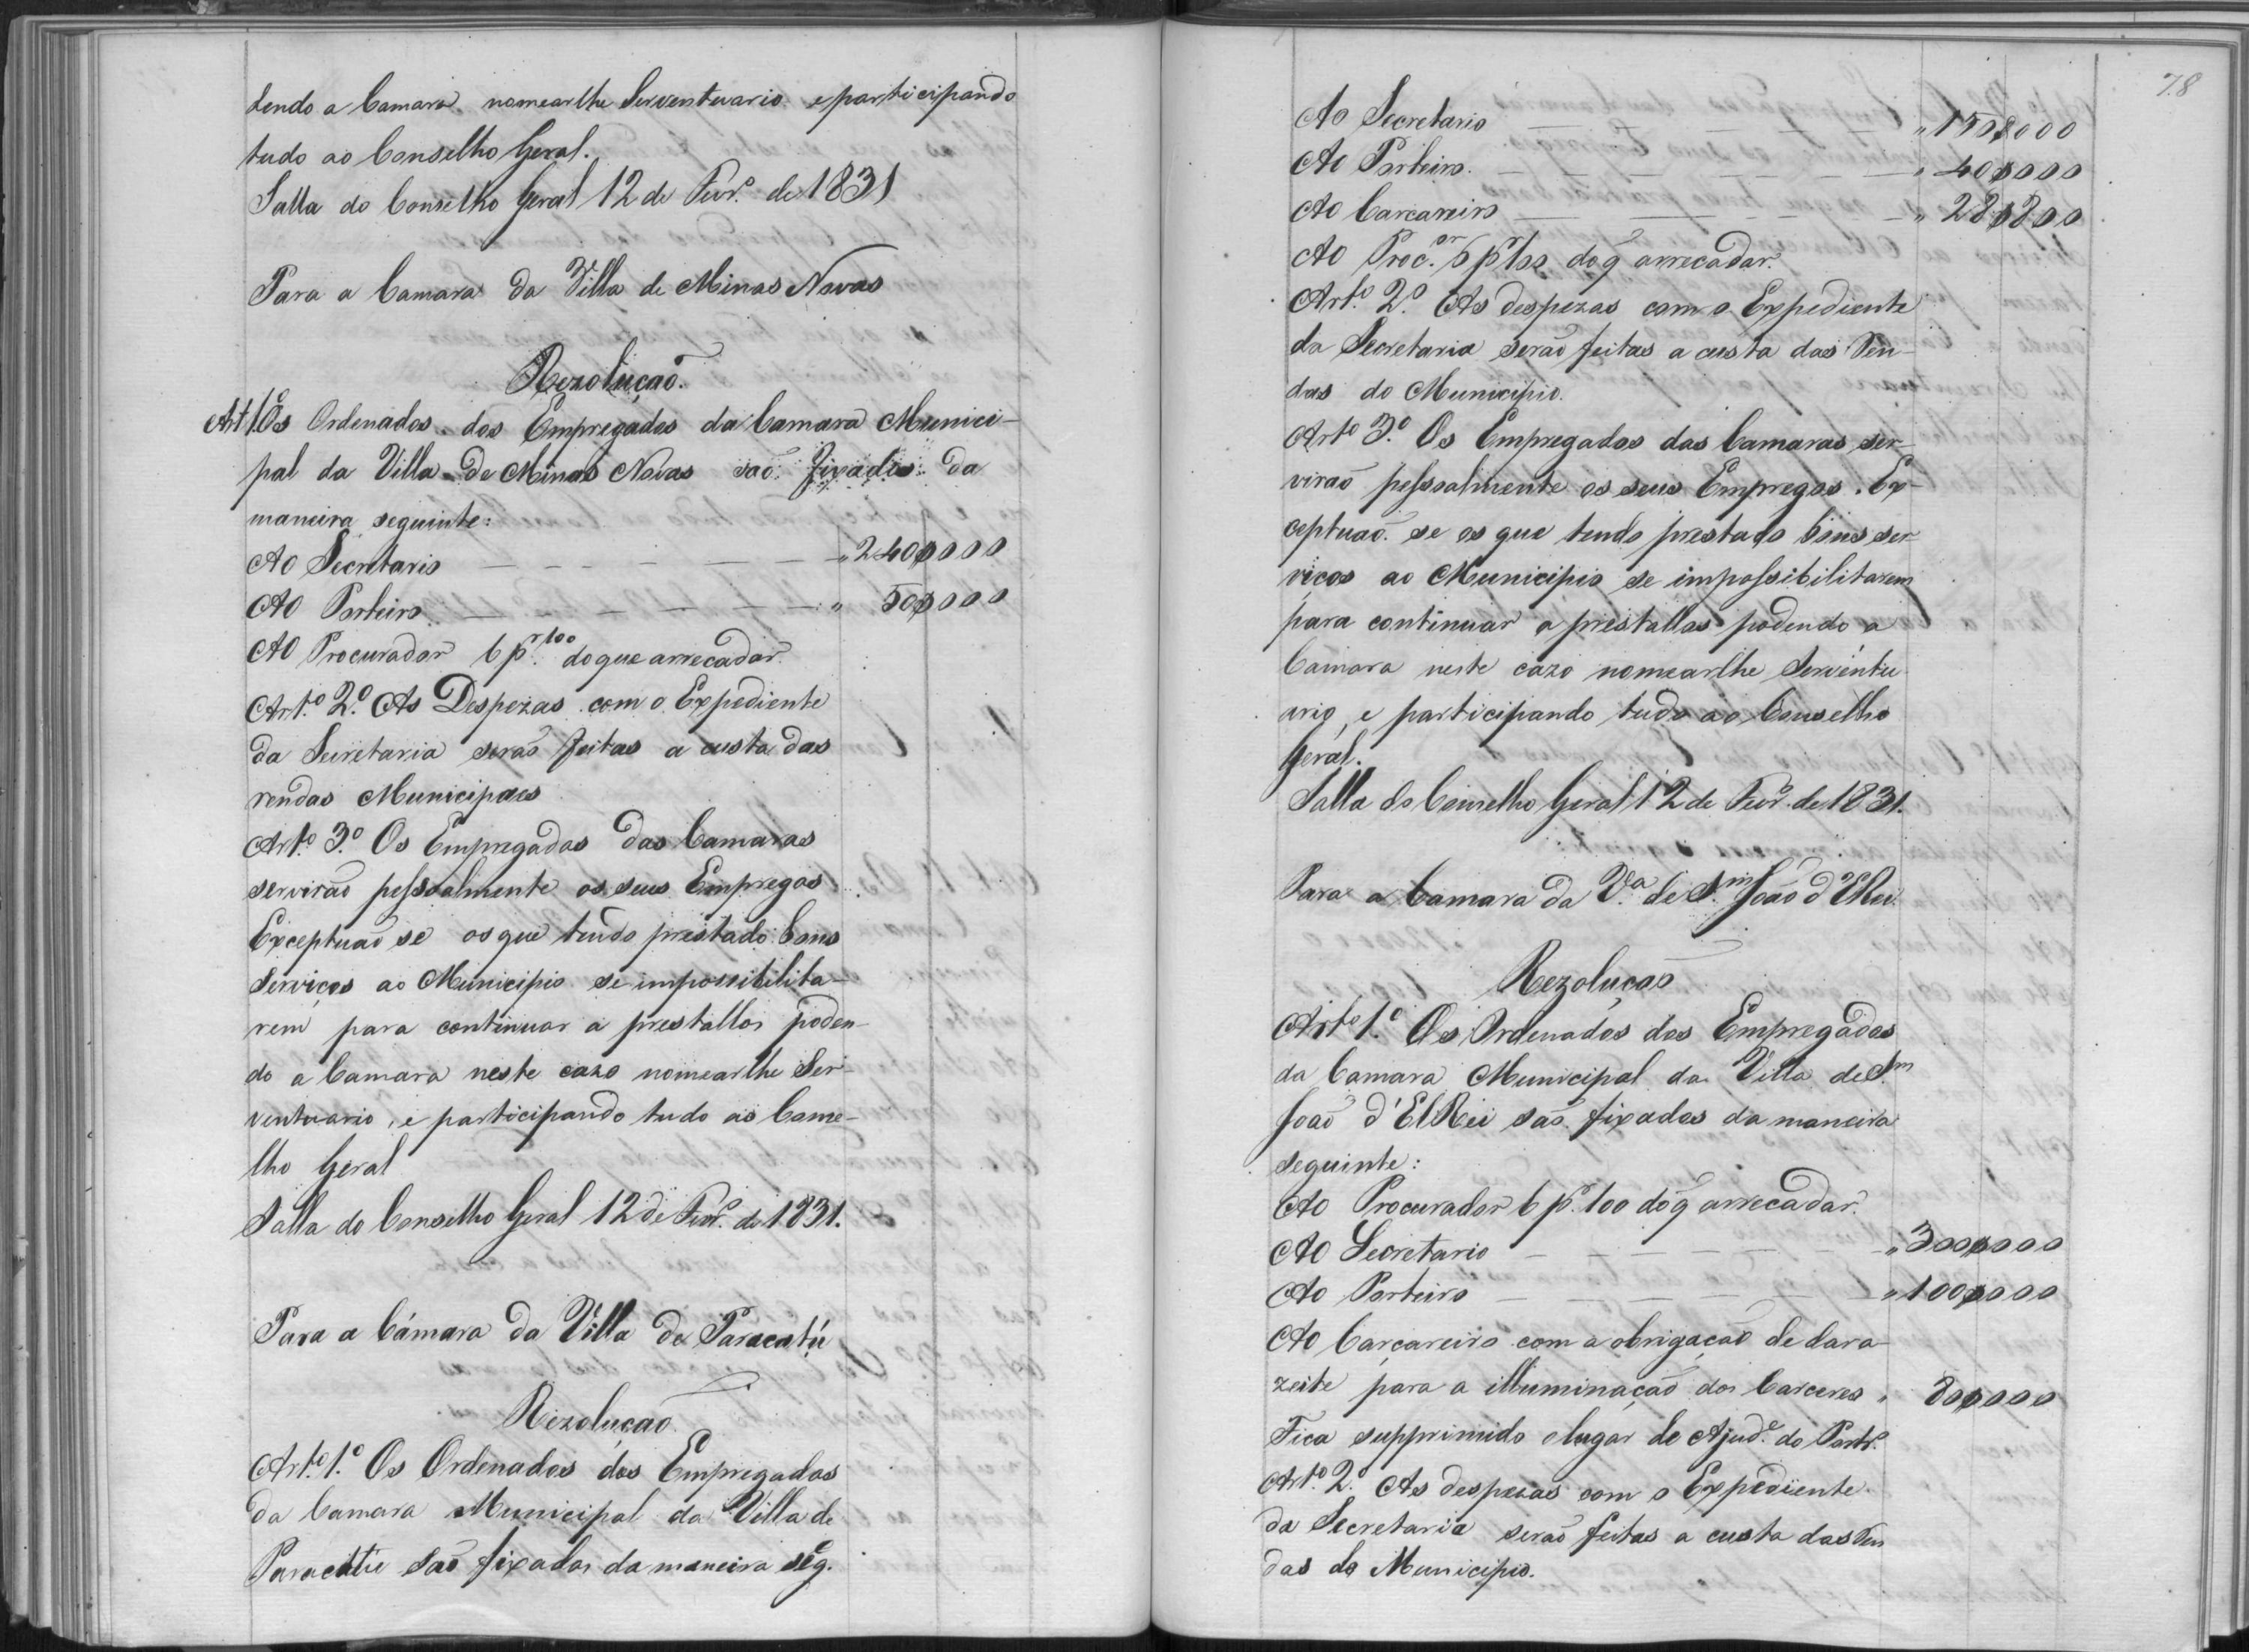 dendo a Camara nomearlhe Serventuario e participando
tudo ao Conselho Geral.
Salla do Conselho Geral 12 de Fevr.º de 1831
Para a Camara da Villa de Minas Novas
Rezolução.
Art 1.º Os Ordenados dos Empregados da Camara Munici-
pal da Villa de Minas Novas saõ fixados da
maneira seguinte:
Ao Secretario — — — — — — „ 240$000
Ao Porteiro — — — — — — „ 50$000
Ao Procurador 6 p.r 100 do que arrecadar.
Art.º 2.º As Despezas com o Expediente
da Secretaria seraõ feitas a custa das
rendas Municipaes
Art.º 3.º Os Empregados das Camaras
servirão pessoalmente os seus Empregos
Exceptuaõ se os que tendo prestado bons
Serviços ao Municipio se impossibilita-
rem para continuar a prestallos poden-
do a Camara neste cazo nomearlhe Ser
ventuario, e participando tudo ao Conse-
lho Geral
Salla do Conselho Geral 12 de Fevr.º de 1831.
Para a Cámara da Villa de Paracatú
Rezolução
Art.º 1.º Os Ordenados dos Empregados
da Camara Municipal da Villa de
Paracatú saõ fixados da maneira seg.e
78
Ao Secretario — — — — „ 150$000
Ao Porteiro. — — — — — „ 40$000
Ao Carcareiro — — — — „ 28$800
Ao Proc.or 6 p.r 100 do q̃ arrecadar.
Art.º 2.º As despezas com o Expediente
da Secretaria seraõ feitas a custa das Ren-
das do Municipio.
Art.º 3.º Os Empregados das Camaras ser-
viraõ pessoalmente os seus Empregos. Ex-
ceptuaõ se os que tendo prestado bons ser-
viços ao Municipio se impossibilitarem
para continuar a prestallos podendo a
Camara neste cazo nomearlhe Serventu-
ario, e participando tudo ao Conselho
Geral.
Salla do Conselho Geral 12 de Fevr.º de 1831.
Para a Camara da V.a de S.m Joaõ d'ElRei
Rezoluçaõ
Art.º 1.º Os Ordenados dos Empregados
da Camara Municipal da Villa de S.m
Joaõ d'ElRei saõ fixados da maneira
seguinte:
Ao Procurador 6 p.r 100 do q̃ arrecadar.
Ao Secretario — — — — „ 300$000
Ao Porteiro — — — — — „ 100$000
Ao Carcareiro com a obrigaçaõ de dar a-
zeite para a illuminaçaõ dos Carceres „ 80$000
Fica supprimido o lugar de Ajud.e do Portr.º
Art.º 2.º As despezas com o Expediente
da Secretaria seraõ feitas a custa das Ren
das do Municipio.